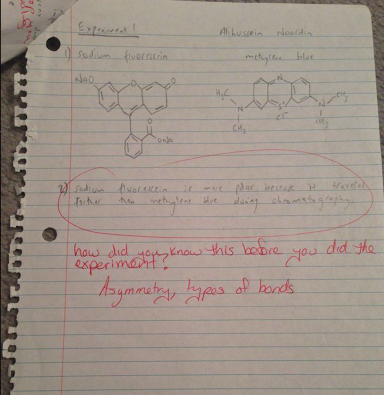 Experiment 1
Alihussein Noordin
1) sodium fluorescein methylene blue
NaO O
O
O
ONa
N
H₃C N S⁺ N CH₃
CH₃ Cl⁻ CH₃
2) sodium fluorescein is more polar because it traveled
farther than methylene blue during chromatography
how did you know this before you did the
experiment?
Asymmetry, types of bonds